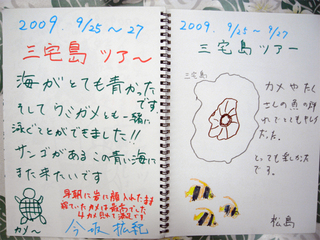 2009. 9/25 ~ 27
三宅島 ツアー
海がとても青かった
です
そして ウミガメとも一緒に
泳ぐことができました!!
サンゴがあるこの青い海に
また来たいです
早朝に岩に
寝ていたカメは
4カメ
カメ〜
2009. 9/25 ~ 9/27
三宅島 ツアー
三宅島
カメや たく
さんの魚の群
れ
だった。
とっても楽しかった
です。
松島